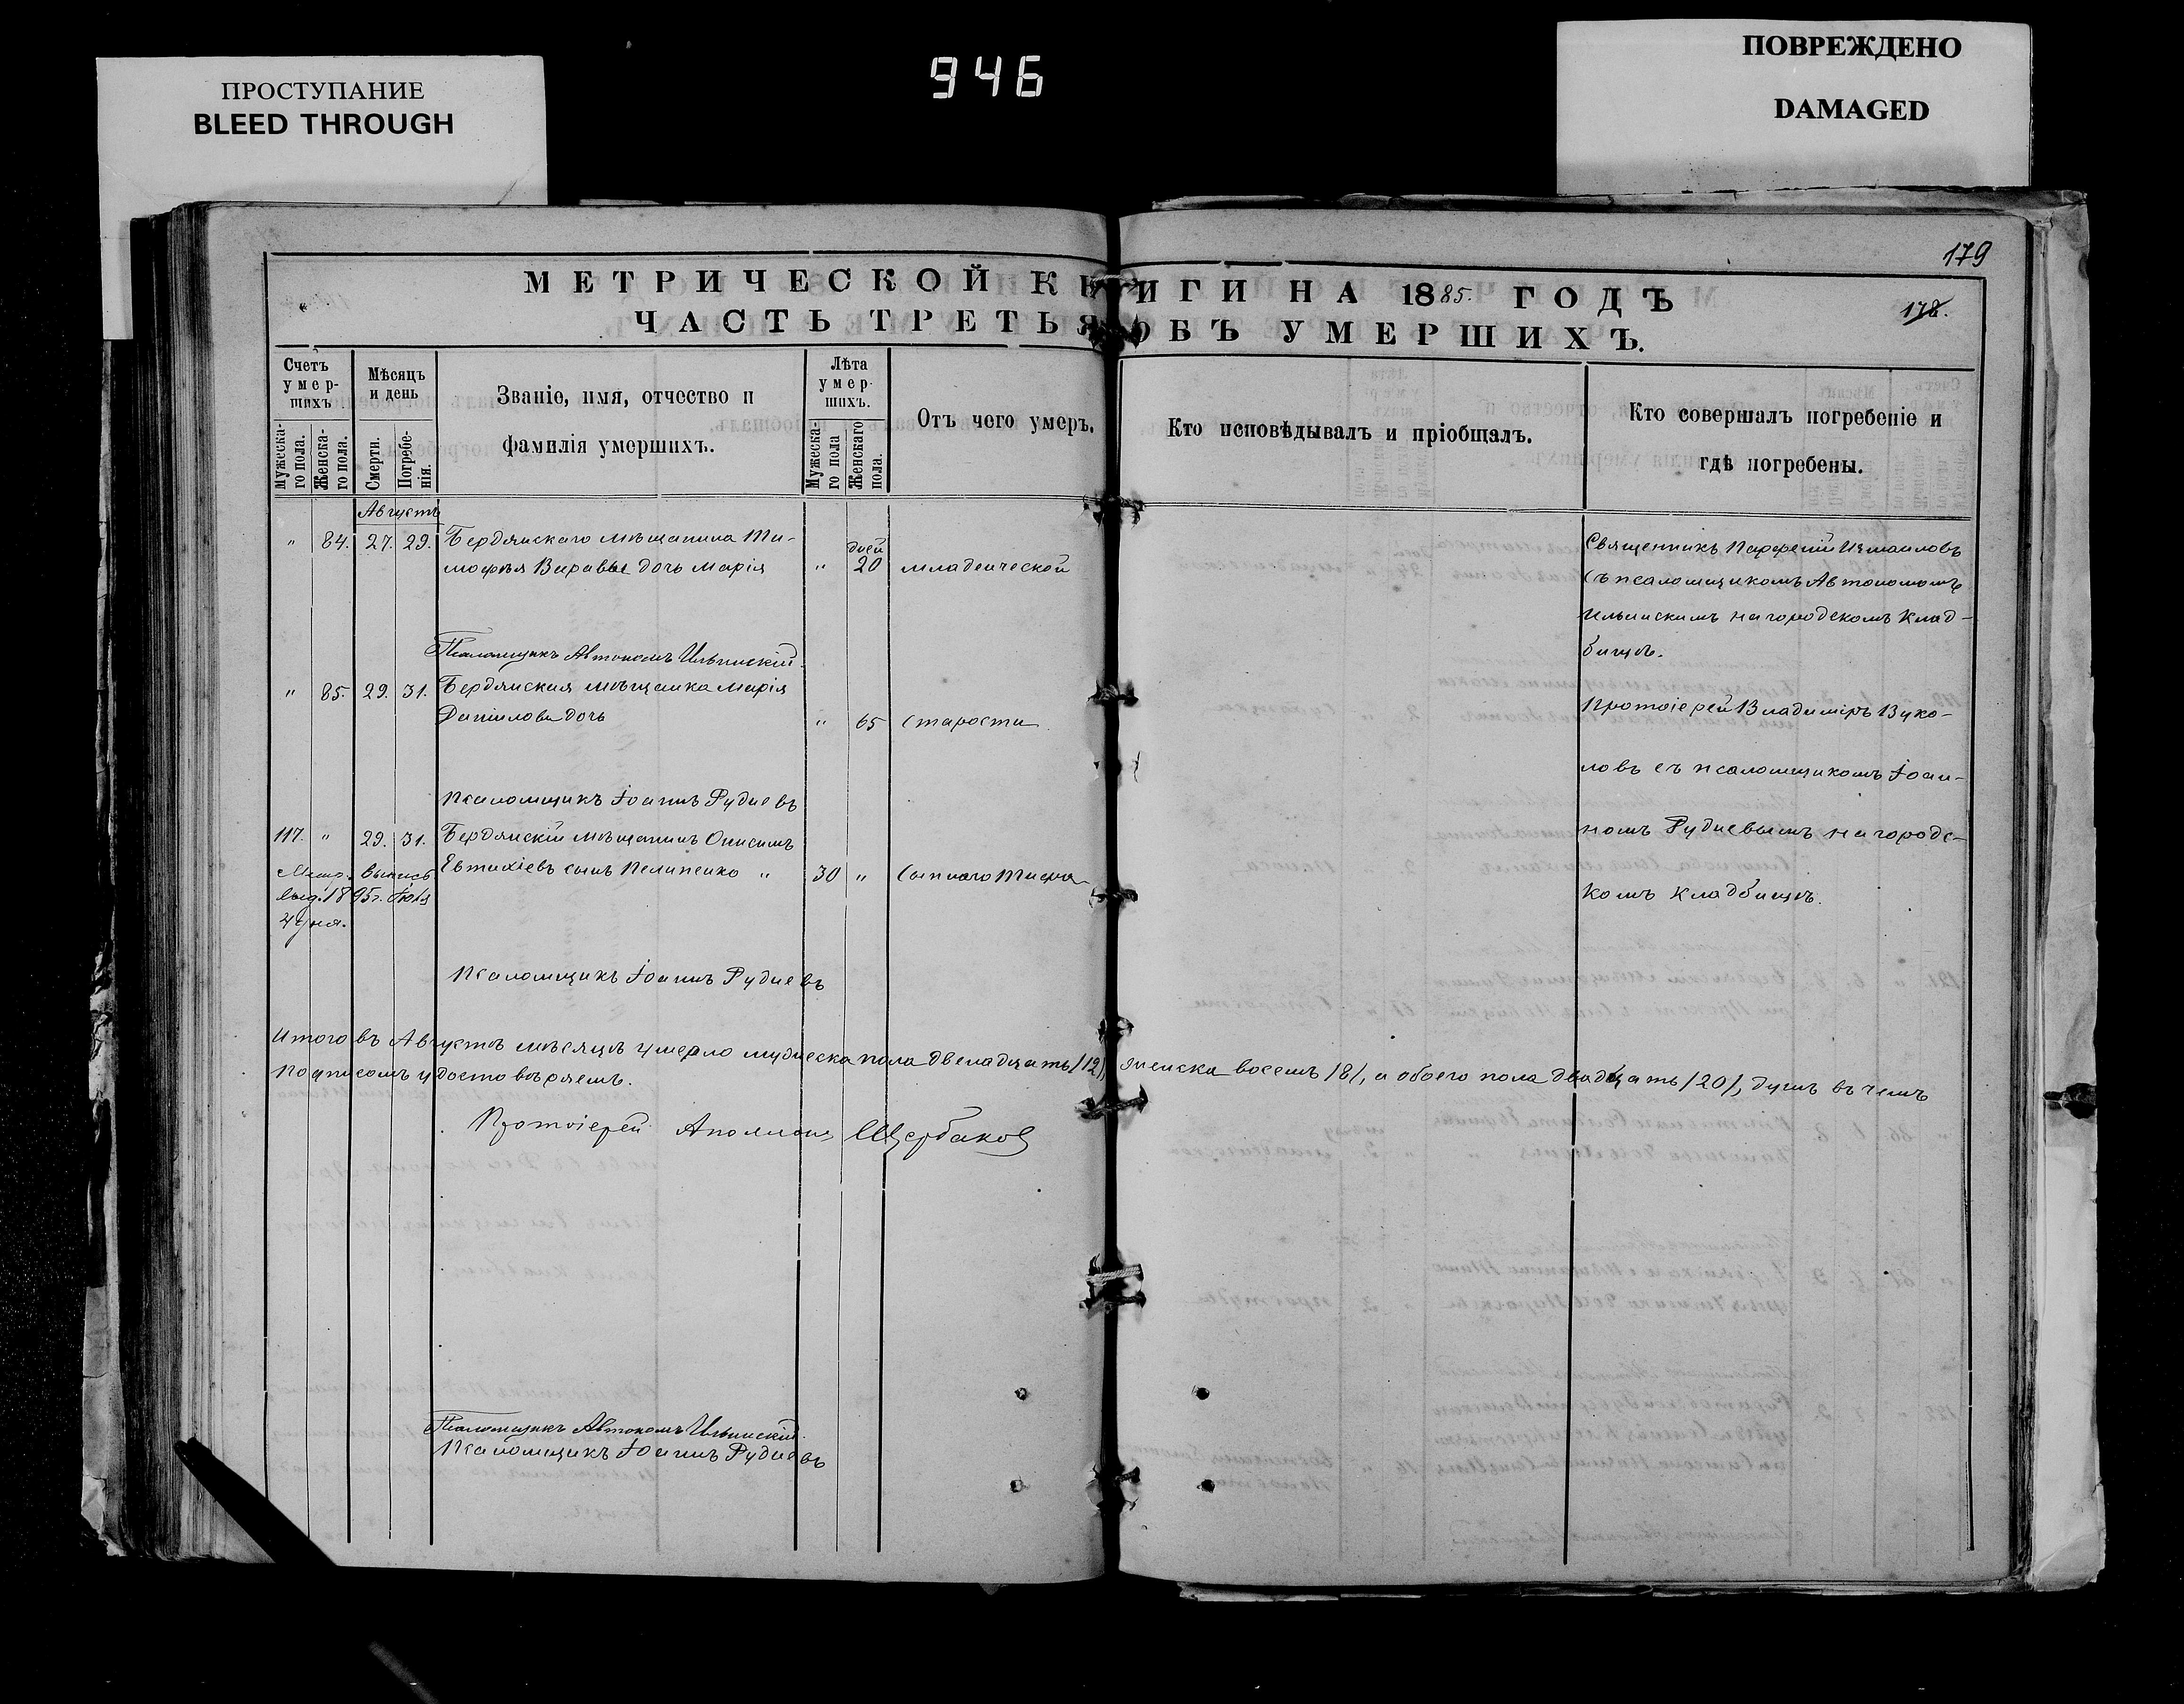 ПРОСТУПАНИЕ
BLEED THROUGH
946
ПОВРЕЖДЕНО
DAMAGED
179
МЕТРИЧЕСКОЙ КНИГИ НА 1885. ГОДЪ
178.
ЧАСТЬ ТРЕТЬЯ ОБЪ УМЕРШИХЪ.
Счетъ умер-шихъ.
Мужеска-го пола.
Женска-го пола.
Мѣсяцъ и день
Смерти.
Погребе-нія.
Званіе, имя, отчество и
фамилія умершихъ.
Лѣта умер-шихъ.
Мужеска-го пола
Женскаго пола.
Отъ чего умеръ.
Кто исповѣдывалъ и пріобщалъ.
Кто совершалъ погребеніе и
гдѣ погребены.
Августъ
" 84. 27. 29. Бердянскаго мѣщанина Ти-
мофея дочь Марія " дней 20 младенческой
Священникъ Парфеній Измаиловъ
съ псаломщикомъ Автономомъ
Ильинскимъ на городскомъ клад-
бищѣ.
Псаломщикъ Автономъ Ильинскій.
" 85. 29. 31. Бердянская мѣщанка Марія
Данилова дочь " 65 старости
Протоіерей Владиміръ Вуко-
ловъ съ псаломщикомъ Іоан-
номъ Рудневымъ на городс-
комъ кладбищѣ.
Псаломщикъ Іоаннъ Рудневъ
117. " 29. 31. Бердянскій мѣщанинъ Онисимъ
Евтихіевъ сынъ Пелипенко " 30 " сыпного тифа
Метр. выпись
выд. 1895 г. Іюля
4 дня.
Псаломщикъ Іоаннъ Рудневъ
Итого въ Августѣ мѣсяцѣ умерло мужеска пола двенадцать /12/, женска восемь /8/, а обоего пола двадцать /20/, душъ въ чемъ
подписомъ удостовѣряемъ.
Протоіерей Аполлонъ Щербаковъ
Псаломщикъ Автономъ Ильинскій.
Псаломщикъ Іоаннъ Рудневъ